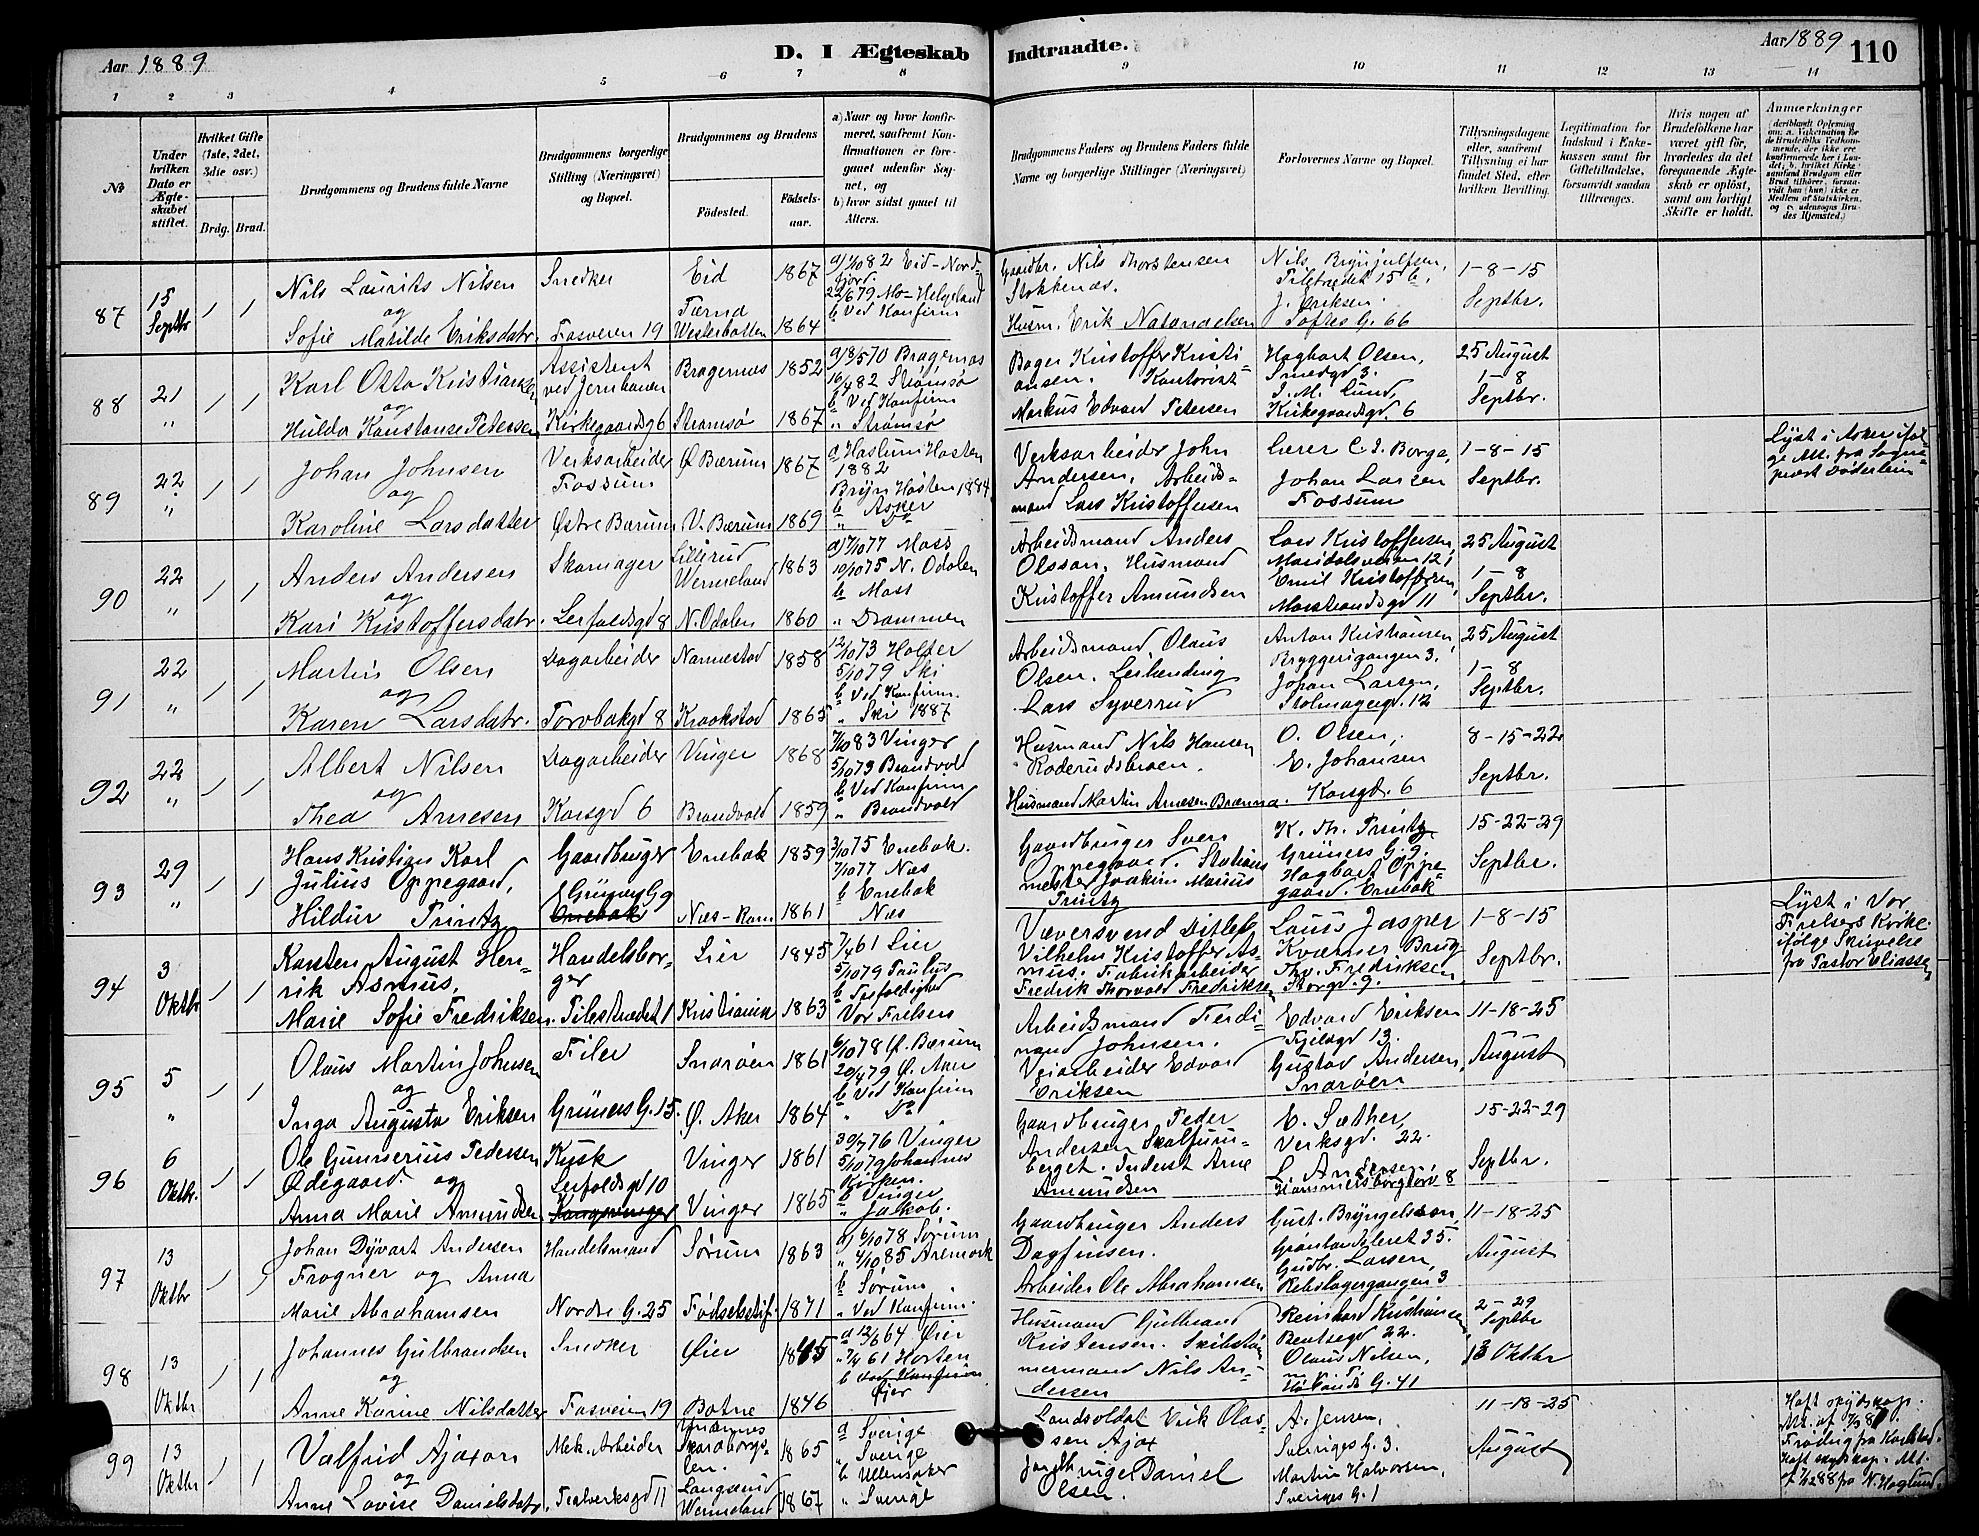 Aar 1889
D. I Ægteskab Indtraadte.
Aar 1889
110
1 2 3 4 5 6 7 8 9 10 11 12 13 14
No
Under hvilken Dato er Ægteskabet stiftet.
Hvilket Gifte (1ste, 2det, 3die osv.)
Brdg. Brud.
Brudgommens og Brudens fulde Navne
Brudgommens borgerlige Stilling (Næringsvei) og Bopæl.
Brudgommens og Brudens
Fødested.
Fødsels-aar.
a) Naar og hvor konfirmeret, saafremt Konfirmationen er foregaaet udenfor Sognet, og
b) hvor sidst gaaet til Alters.
Brudgommens Faders og Brudens Faders fulde Navne og borgerlige Stillinger (Næringsvei)
Forlovernes Navne og Bopæl.
Tillysningsdagene eller, saafremt Tillysning ei har fundet Sted, efter hvilken Bevilling.
Legitimation for Indskud i Enkekassen samt for Giftetilladelse, forsaavidt saadan tiltrænges.
Hvis nogen af Brudefolkene har været gift før, hvorledes da det foregaaende Ægteskab er opløst, samt om lovligt Skifte er holdt.
Anmærkninger
87 15 Septbr
Nils Laurits Nilsen og Sofie Matilde Eriksdatr.
Snedker Fosveien 19
Eid 1867
Tærna Westerbotten 1864
a) 1/10 82 Eid-Nordfjord
22/6 79 Mo-Helgeland
b Ved Konfirm
Gaardbr. Nils Thorstensen Stokkenæs.
Husm. Erik Natanaelsen
Nils Brynjulfsen, Piletrædet 15 b,
J. Eriksen. Toftes G. 66
1-8-15 Septbr.
88 21 "
Karl Otto Kristiansen og Hulda Konstanse Petersen
Assistent ved Jernbanen Kirkegaardsg 6
Bragernæs 1852
Strømsø 1867
a) 8/5 70 Bragernæs
16/4 82 Strømsø
b Ved Konfirm
" Strømsø
Bager Kristoffer Kristiansen. Kontorist
Markus Edvard Petersen
Hagbart Olsen, Smedgd 3.
J. M. Lund, Kirkegaardsgd. 6
25 August 1-8 Septbr.
89 22 "
Johan Johnsen og Karoline Larsdatter
Verksarbeider Fossum Østre Bærum
Ø. Bærum 1867
V. Bærum 1869
a Haslum Høsten 1882
Bryn Høsten 1884
b Asker
" Do
Verksarbeider John Andersen, Arbeidsmand Lars Kristoffersen
Lærer C. I. Borge,
Johan Larsen Fossum
1-8-15 Septbr.
Lyst i Asker ifølge Att. fra Sogneprest Døderlein
90 22 "
Anders Andersen og Kari Kristoffersdatr.
Skomager Lerfaldsgd 8
Sillerud Wermeland 1863
N. Odalen 1860
a) 7/10 77 Moss
10/10 75 N. Odalen
b Moss
" Drammen
Arbeidsmand Anders Olsson, Husmand Kristoffer Amundsen
Lars Kristoffersen, Maridalsveien 121
Emil Kristoffersen, Markveisgd 11
25 August 1-8 Septbr.
91 22 "
Martin Olsen og Karen Larsdatr.
Dagarbeider Torvbakgd 8
Nannestad 1858
Kraakstad 1865
12/10 73 Holter
5/10 79 Ski
b Ved Konfirm.
" Ski 1887
Arbeidsmand, Olaus Olsen. Leilending
Lars Syverud
Anton Kristiansen, Bryggerigangen 3.
Johan Larsen, Stolmagergd. 12
25 August 1-8 Septbr.
92 22 "
Albert Nilsen og Thea Arnesen
Dagarbeider Korsgd 6
Vinger 1868
Brandvold 1859
7/10 83 Vinger
5/10 73 Brandvold
b Ved Konfirm
" Brandvold
Husmand Nils Hansen Roderudsbroen.
Husmand Martin Arnesen Brænna.
O. Olsen, E. Johansen Korsgd. 6
8-15-22 Septbr.
93 29 "
Hans Kristian Karl Julius Oppegaard, Hildur Printz
Gaardbruger Grüners G 9 Enebak
Enebak 1859
Næs-Rom 1861
3/10 75 Enebak.
7/10 77 Næs
b Enebak
Næs
Gaardbruger Sven Oppegaard. Stationsmester Joakim Marius Printz
K. Th. Printz Grüners G. 9.
Hagbart Oppegaard. Enebak
15-22-29 Septbr.
94 3 Oktbr
Karsten August Henrik Asmus, Marie Sofie Fredriksen.
Handelsborger Pilestrædet 1
Lier 1845
Kristiania 1863
7/4 61 Lier
5/10 79 Paulus
b Trefoldighed
Vor Frelsers
Væversvend Ditlev Vilhelm Kristoffer Asmus. Fabrikarbeider Fredrik Thorvald Fredriksen
Louis Jasper Kværner Brug
Thv. Fredriksen, Storgd. 9.
1-8-15 Septbr.
Lyst i Vor Frelsers Kirke ifølge Skrivelse fra Pastor Eliassen
95 5 "
Olaus Martin Johnsen og Inga Augusta Eriksen
Filer Grüners G. 15.
Snarøen 1861
Ø. Aker 1864
6/10 78 Ø. Bærum
20/4 79 Ø. Aker
b Ved Konfirm
" Do
Arbeidsmand Ferdinand Johnsen.
Veiarbeider Edvard Eriksen
Edvard Eriksen Fjeldgd 13.
Gustav Andersen, Snarøen
11-18-25 August
96 6 Oktbr.
Ole Gunnerius Pedersen Ødegaard. og Anna Marie Amundsen.
Kusk Lerfaldsgd 10 Kongsvinger
Vinger 1861
Vinger 1865
30/7 76 Vinger
5/10 79 Johannes Kirken.
b Vinger
" Jakob.
Gaardbruger Peder Andersen Skalfuruberget. Inderst Arne Amundsen
E. Sæther, Verksgd. 22.
L. Andersen, Hammersborgtorv 8
15-22-29 Septbr.
97 13 Oktbr
Johan Dyvart Andersen Frogner og Anna Marie Abrahamsen
Handelsmand Nordre G. 25
Sørum 1863
Fødselsstif. 1871
a) 6/10 78 Sørum
" 4/10 85 Aremark
b Sørum
" Ved Konfirm.
Gaardbruger Anders Dagfinsen.
Arbeider Ole Abrahamsen
Gust. Bryngelsson, Grønlandsleret 35.
Gudbr. Larsen, Rebslagergangen 3
11-18-25 August
98 13 Oktbr
Johannes Gulbrandsen og Anne Karine Nilsdatter
Snedker Fosveien 19
Øier 1845
Botne 1846
a 12/6 64 Øier
" 7/4 61 Horten
b Ved Konfirm.
Øjer
Husmand Gulbrand Kristensen. Skibstømmermand Nils Andersen
Reinhard Kristiansen, Bentsegd 22.
Olaus Nilsen, G. 41
2-29 Septbr 13 Oktbr
99 13 Oktbr
Valfrid Ajaxon og Anne Lovise Danielsdatr.
Mek. Arbeider Fralverksgd 11
Skaraborgs Len. 1865
Langserud Wermeland 1867
a Sverige
" Sverige
b Ullensaker
" Sverige
Landsoldat Erik Olassen Ajax
Jordbruger Daniel Olsen.
A. Jensen, Sverriges G. 3.
Martin Halvorsen, Sverriges G. 1
11-18-25 August